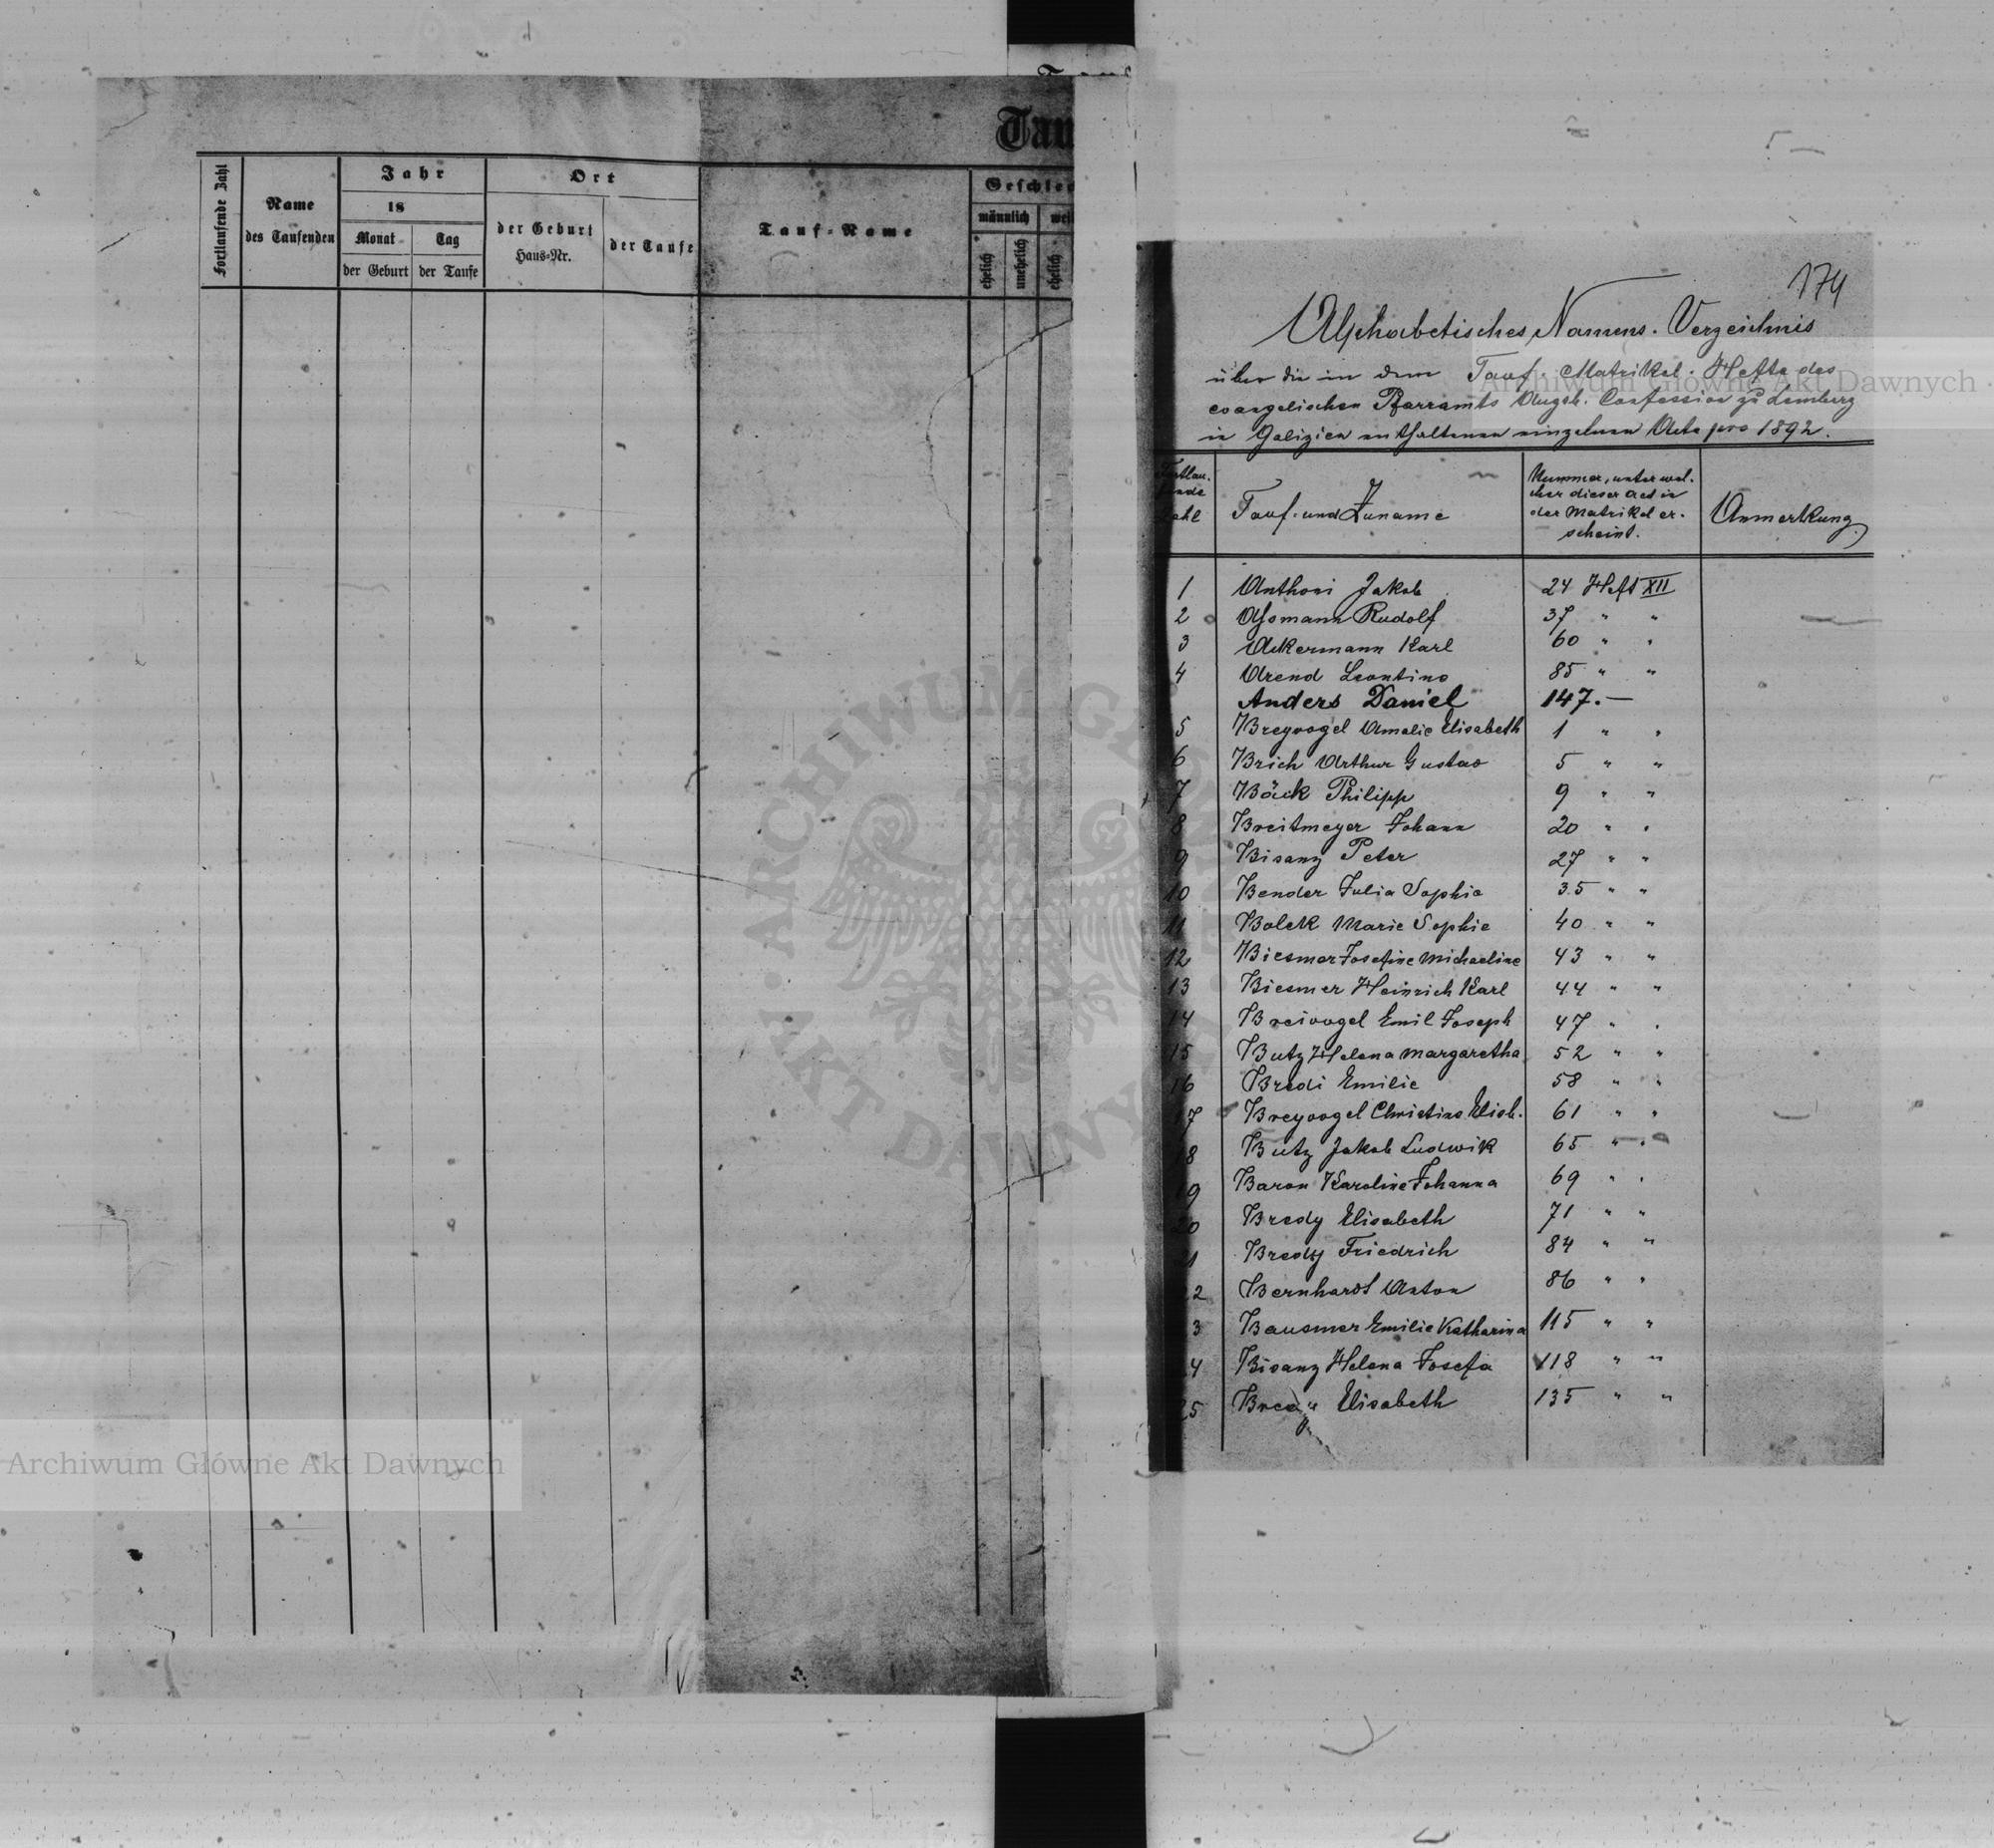 Tau
Fortlaufende Zahl
Name
des Taufenden
Jahr
18
Monat
Tag
der Geburt
der Taufe
Ort
der Geburt
Haus-Nr.
der Taufe
Tauf-Name
Geschlec
männlich
wei
ehelich
unehelich
ehelich
174
Alphabetisches Namens-Verzeichnis
über die in dem Tauf-Matrikel-Hefte des
evangelischen Pfarramts Augsb. Confession zu Lemberg
in Galizien enthaltenen einzelnen Acte pro 1892.
Tauf- und Zuname
Nummer, unter wel-
cher dieser Act in
der Matrikel er-
scheint.
Anmerkung
1 Anthoni Jakob 24 Heft XII
2 Assmann Rudolf 37 " "
3 Ackermann Karl 60 " "
4 Arend Leontine 85 " "
Anders Daniel 147.—
5 Breyvogel Amalie Elisabeth 1 " "
6 Brich Arthur Gustav 5 " "
7 Bäck Philipp 9 " "
8 Breitmeyer Johann 20 " "
9 Bisanz Peter 27 " "
10 Bender Julia Sophie 35 " "
11 Bolek Marie Sophie 40 " "
12 Biesmer Josefine Michaeline 43 " "
13 Biesmer Heinrich Karl 44 " "
14 Breivogel Emil Joseph 47 " "
15 Butz Helena Margaretha 52 " "
16 Bredi Emilie 58 " "
17 Breyvogel Christine Elisb. 61 " "
18 Butz Jakob Ludwik 65 " "
19 Baron Karoline Johanna 69 " "
20 Bredy Elisabeth 71 " "
21 Bredy Friedrich 84 " "
22 Bernhardt Anton 86 " "
3 Bausmer Emilie Katharina 115 " "
4 Bisanz Helena Josefa 118 " "
25 Elisabeth 135 " "
Archiwum Główne Akt Dawnych
Archiwum Główne Akt Dawnych